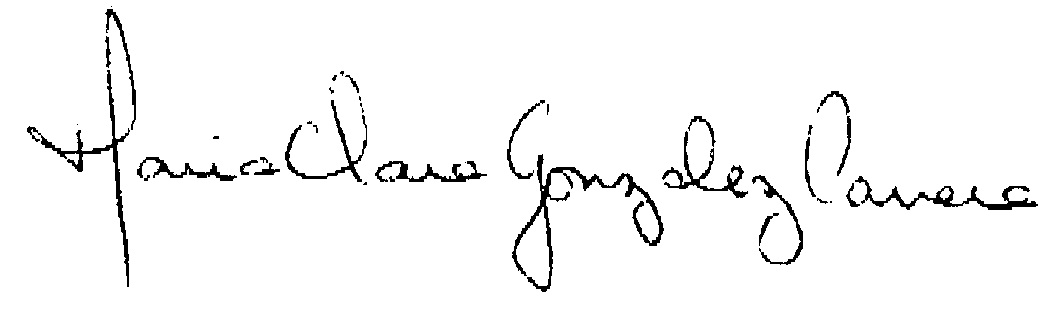 Maria Clara Gonzalez Carrera